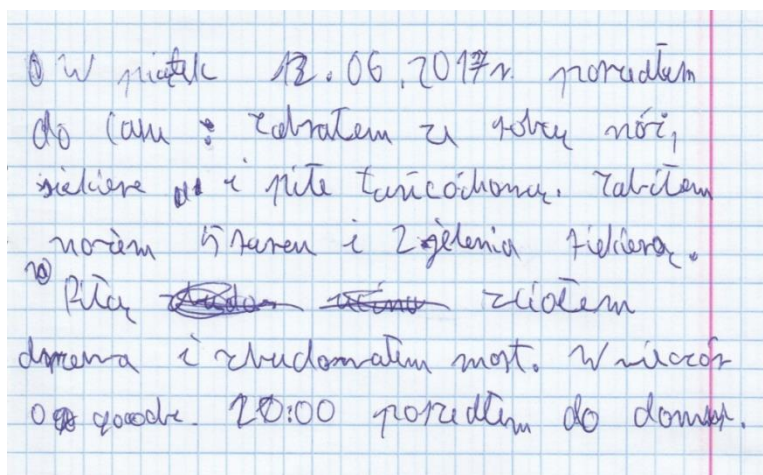 W piątek 12.06.2017r. poszedłem
do lasu zabrałem ze sobą nóż,
siekiere i piłe łańcóchową. Zabiłem
norzem 5 i 2 jelenia siekierą.
Piłą ściołem
drzewa i zbudowałem most. W wieczór
o godz. 20:00 poszedłem do domu.